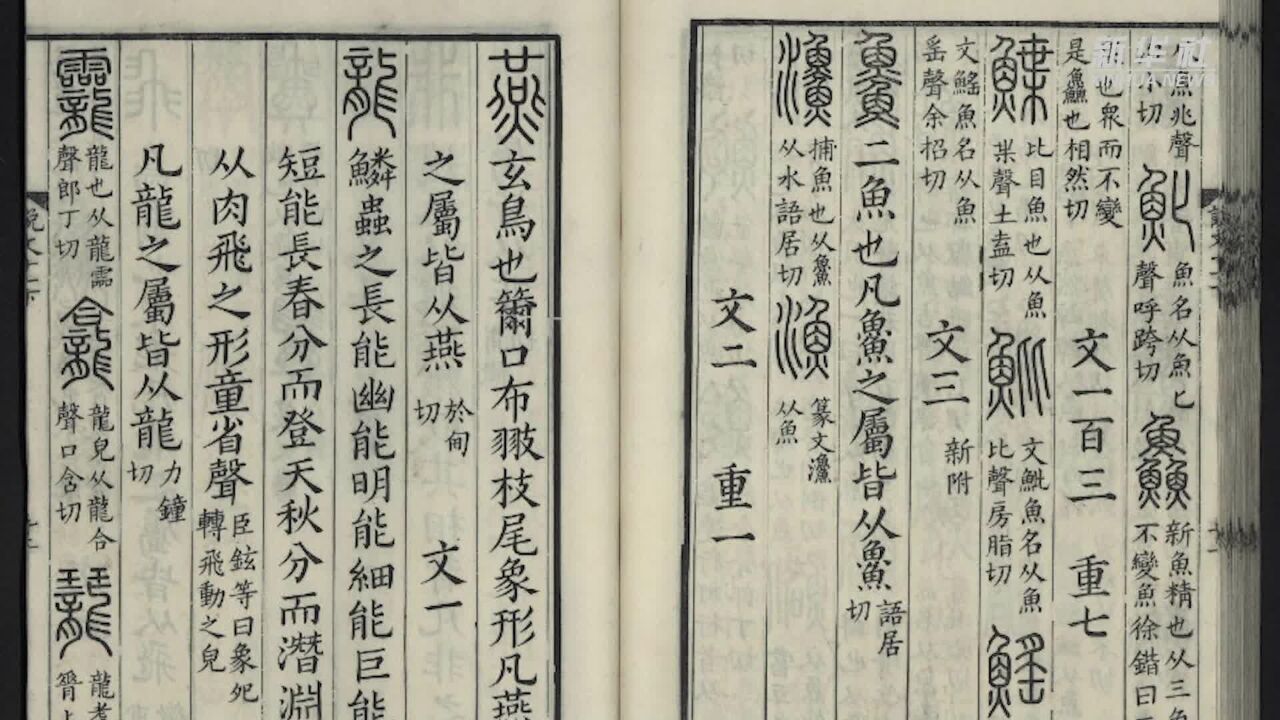 新华社
XINHUA NEWS
魚兆聲小切 魤 魚名从魚匕聲呼跨切 鱻 新魚精也从三魚不變魚徐鍇曰
也眾而不變是鱻也相然切 文一百三 重七
鰈 比目魚也从魚枼聲土盍切 魮 文魮魚名从魚比聲房脂切 鰩
文鰩魚名从魚䍃聲余招切 文三 新附
䲆 二魚也凡䲆之屬皆从䲆語居切
𤅀 捕魚也从䲆从水語居切 漁 篆文𤅀从魚
文二 重一
燕 玄鳥也籋口布翄枝尾象形凡燕
之屬皆从燕於甸切 文一
龍 鱗蟲之長能幽能明能細能巨能
短能長春分而登天秋分而潛淵
从肉飛之形童省聲臣鉉等曰象夗轉飛動之皃
凡龍之屬皆从龍力鐘切
龗 龍也从龍霝聲郎丁切 龕 龍皃从龍合聲口含切 龍耆脊上
說文十一下